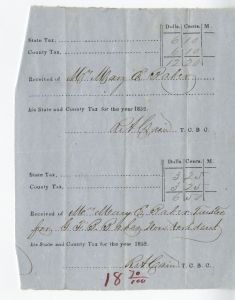 Dolls. Cents. M.
State Tax, 6 10
County Tax, 6 10
12 20
Received of Mrs Mary E. Baker
his State and County Tax for the year 1852.
T. C. B. C.
Dolls. Cents. M.
State Tax, 3 25
County Tax, 3 25
6 50
Received of Mrs Mary E. Baker Trustee
for
his State and County Tax for the year 1852.
T. C. B. C.
18 70/100